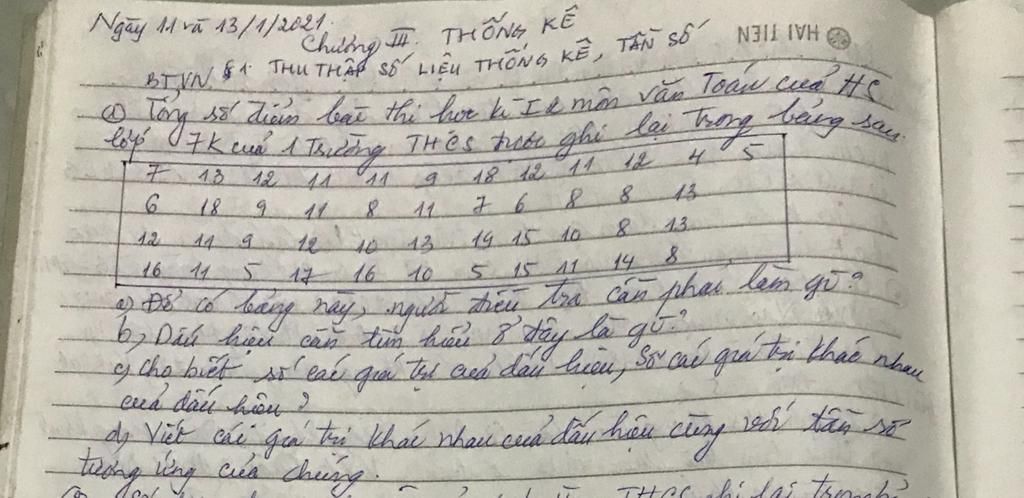 Ngày 11 và 13/1/2021.
HẢI TIẾN
Chương III. THỐNG KÊ
BTVN §1. THU THẬP SỐ LIỆU THỐNG KÊ, TẦN SỐ
① Tổng số điểm bài thi học kì I 2 môn văn Toán của HS
lớp 7K của 1 Trường THCS được ghi lại trong bảng sau.
7 13 12 11 11 9 18 12 11 12 4 5
6 18 9 11 8 11 7 6 8 8 13
12 11 9 12 10 13 19 15 10 8 13
16 11 5 17 16 10 5 15 11 14 8
a) Để có bảng này, người điều tra cần phải làm gì?
b, Dấu hiệu cần tìm hiểu ở đây là gì?
c, Cho biết số các giá trị của dấu hiệu, số các giá trị khác nhau
của dấu hiệu?
d, Viết các giá trị khác nhau của dấu hiệu cùng với tần số
tương ứng của chúng.
THCS ghi lại trong